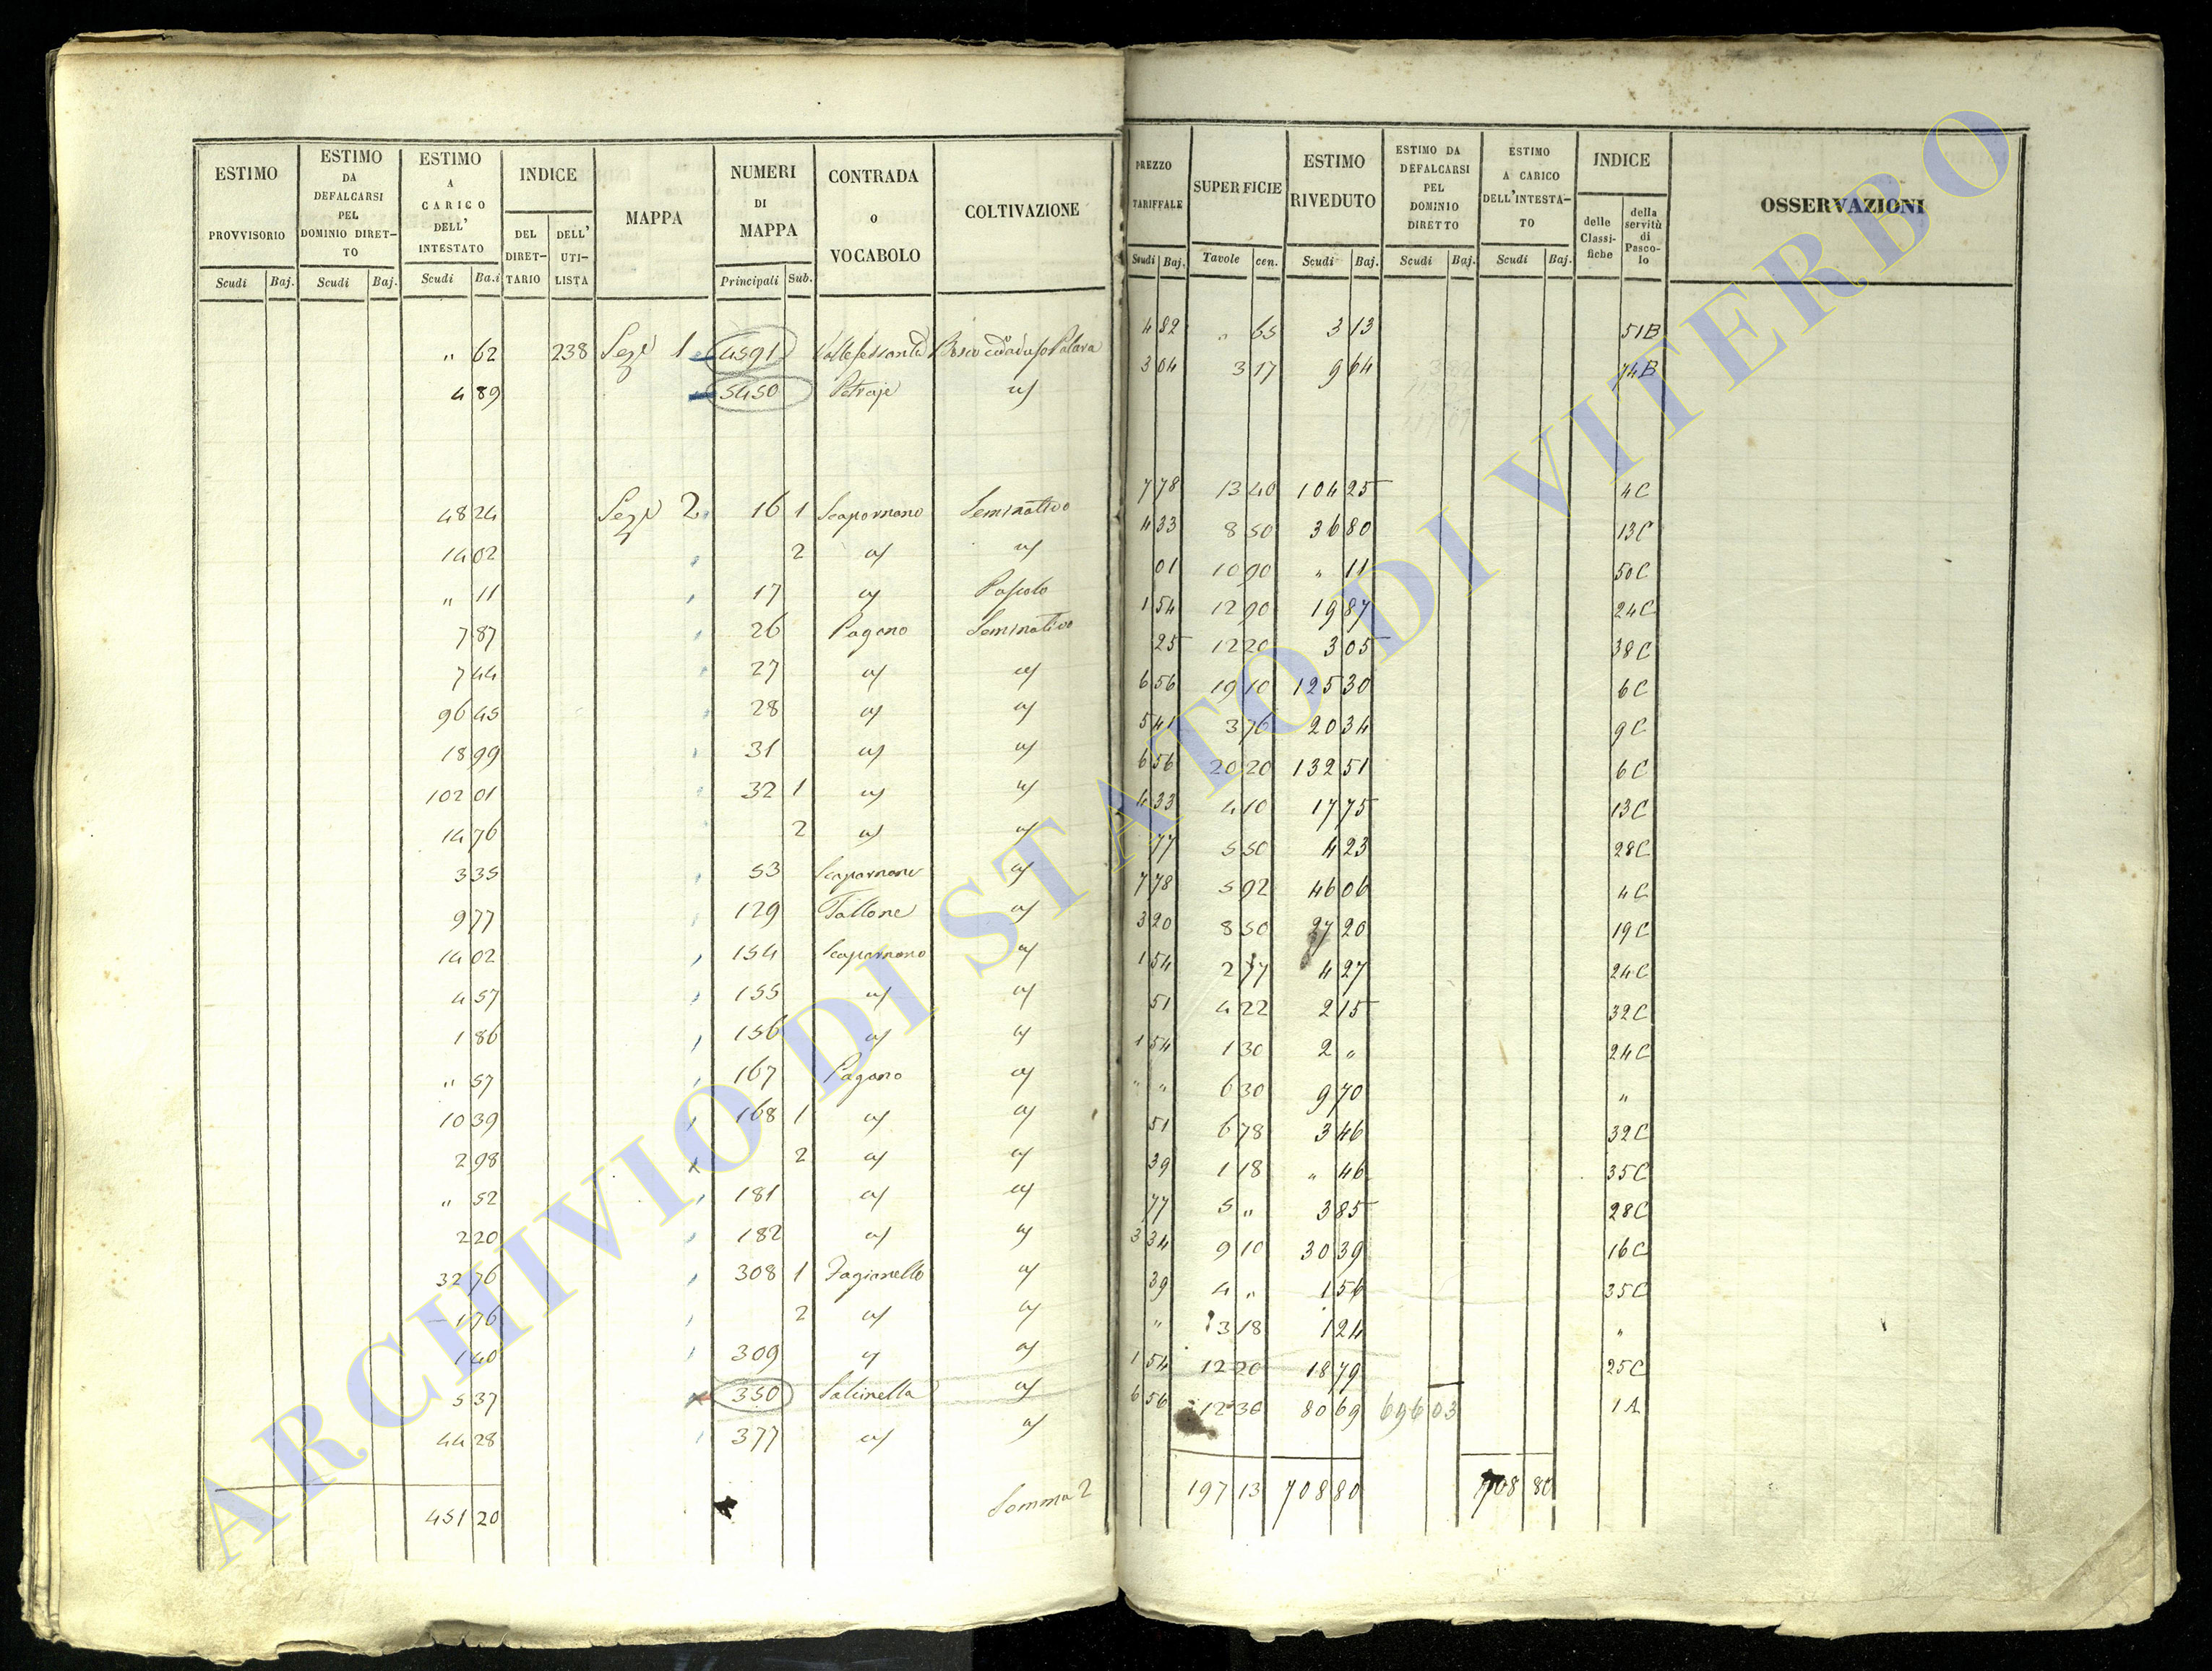 ESTIMO PROVVISORIO Scudi Baj.
ESTIMO DA DEFALCARSI PEL DOMINIO DIRETTO Scudi Baj.
ESTIMO A CARICO DELL' INTESTATO Scudi Ba.i
INDICE DEL DIRETTARIO DELL' UTILISTA
MAPPA
NUMERI DI MAPPA Principali Sub.
CONTRADA o VOCABOLO
COLTIVAZIONE
PREZZO TARIFFALE Scudi Baj.
SUPERFICIE Tavole cen.
ESTIMO RIVEDUTO Scudi Baj.
ESTIMO DA DEFALCARSI PEL DOMINIO DIRETTO Scudi Baj.
ESTIMO A CARICO DELL'INTESTATO Scudi Baj.
INDICE delle Classifiche della servitù di Pascolo
OSSERVAZIONI
" 62 238 Sez 1 4591 4 82 " 65 3 13 51B
4 89 5450 Petraje 3 04 3 17 9 64 74B
48 24 Sez 2 16 1 Scaparnano Seminativo 7 78 13 40 104 25 4C
14 02 2 4 33 8 50 36 80 13C
" 11 17 Pascolo 01 10 90 " 11 50C
7 87 26 Pagano Seminativo 1 54 12 90 19 87 24C
7 44 27 25 12 20 3 05 38C
96 45 28 6 56 19 10 125 30 6C
18 99 31 5 41 3 76 20 34 9C
102 01 32 1 6 56 20 20 132 51 6C
14 76 2 4 33 4 10 17 75 13C
3 35 53 Scaparnano 77 5 50 4 23 28C
9 77 129 Tallone 7 78 5 92 46 06 4C
14 02 154 Scaparnano 3 20 8 50 27 20 19C
4 57 155 1 54 2 77 4 27 24C
1 86 156 51 4 22 2 15 32C
" 57 167 Pagano 1 54 1 30 2 " 24C
10 39 168 1 " " 6 30 9 70 "
2 98 2 51 6 78 3 46 32C
" 52 181 39 1 18 " 46 35C
2 20 182 77 5 " 3 85 28C
32 76 308 1 Fagianello 3 34 9 10 30 39 16C
1 76 2 39 4 " 1 56 35C
1 40 309 " 3 18 1 24 "
5 37 350 Salcinella 1 54 12 20 18 79 25C
44 28 377 6 56 12 30 80 69 696 03 1A
451 20 Somma 2 197 13 708 80 708 80
ARCHIVIO DI STATO DI VITERBO